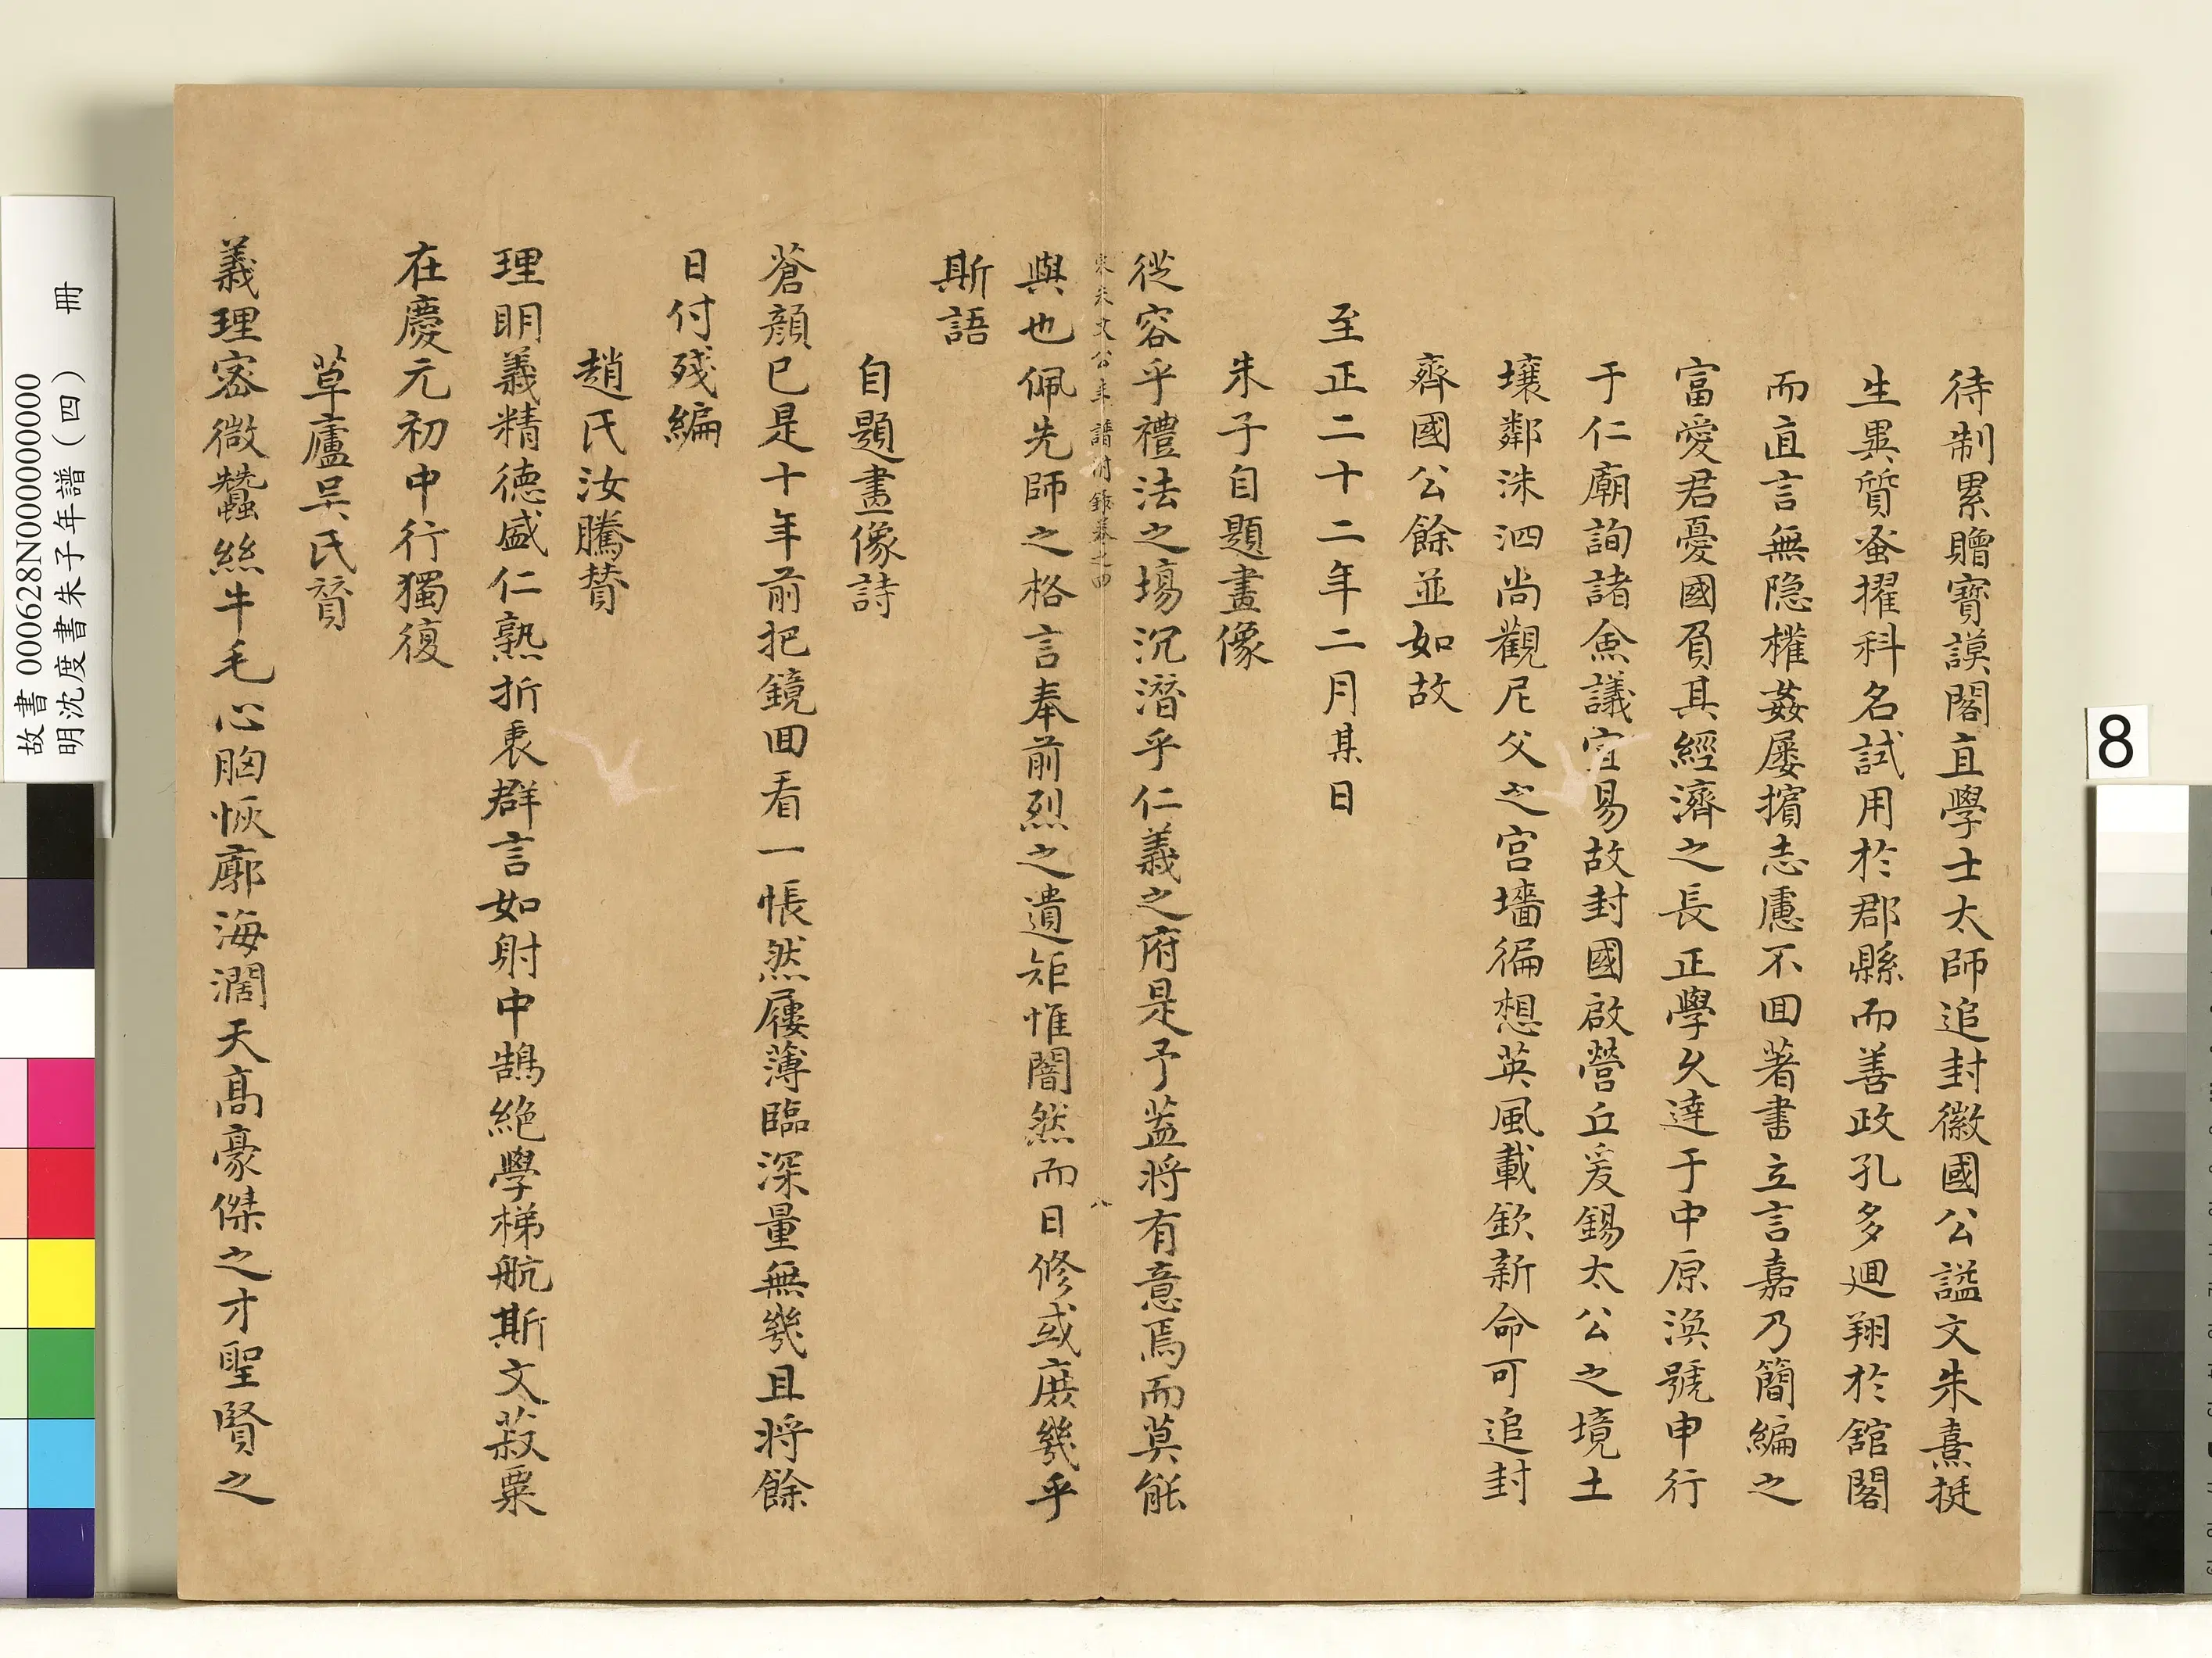 待制累贈寶謨閣直學士太師追封徽國公諡文朱熹挺
生異質蚤擢科名試用於郡縣而善政孔多迴翔於舘閣
而直言無隐權姦屢擯志慮不回著書立言嘉乃簡編之
富愛君憂國負其經濟之長正學久達于中原渙號申行
于仁廟詢諸僉議宜易故封國啟營丘爰錫太公之境土
壤鄰洙泗尚觀尼父之宮墻徧想英風載欽新命可追封
齊國公餘並如故
至正二十二年二月某日
朱子自題畫像
從容乎禮法之場沉潛乎仁義之府是予葢将有意焉而莫能
宋朱文公年譜附錄卷之四 八
與也佩先師之格言奉前烈之遺矩惟闇然而日修或庶幾乎
斯語
自題畫像詩
蒼顔已是十年前把鏡回看一悵然履薄臨深量無幾且将餘
日付殘編
趙氏汝騰贊
理明義精德盛仁熟折衷群言如射中鵠絶學梯航斯文菽粟
在慶元初中行獨復
草廬吳氏贊
義理宻微蠶絲牛毛心胸恢廓海濶天髙豪傑之才聖賢之
故書 000628N000000000
明沈度書朱子年譜(四) 冊
8